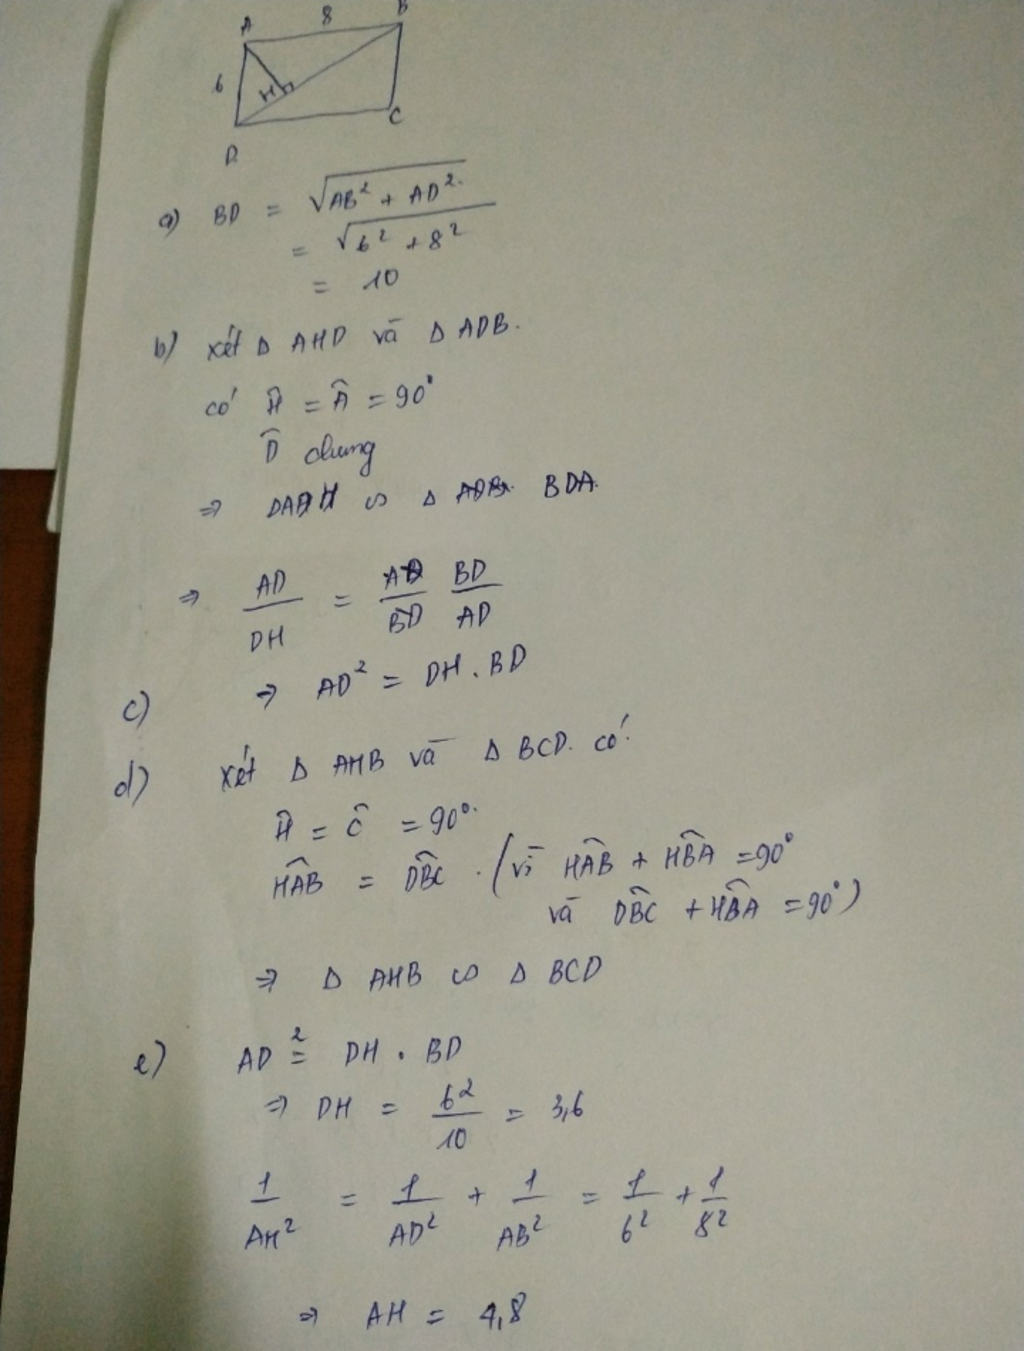 A 8 B
6 H
C
D
a) BD = √AB² + AD²
= √6² + 8²
= 10
b) xét Δ AHD và Δ ADB.
có Ĥ = Â = 90°
D̂ chung
⇒ ∽ Δ BDA.
⇒ AD/DH = BD/AD
c) ⇒ AD² = DH . BD
d) xét Δ AHB và Δ BCD. có.
Ĥ = Ĉ = 90°.
HÂB = DB̂C . (vì HÂB + HB̂A = 90°
và DB̂C + HB̂A = 90°)
⇒ Δ AHB ∽ Δ BCD
e) AD² = DH . BD
⇒ DH = 6²/10 = 3,6
1/AH² = 1/AD² + 1/AB² = 1/6² + 1/8²
⇒ AH = 4,8